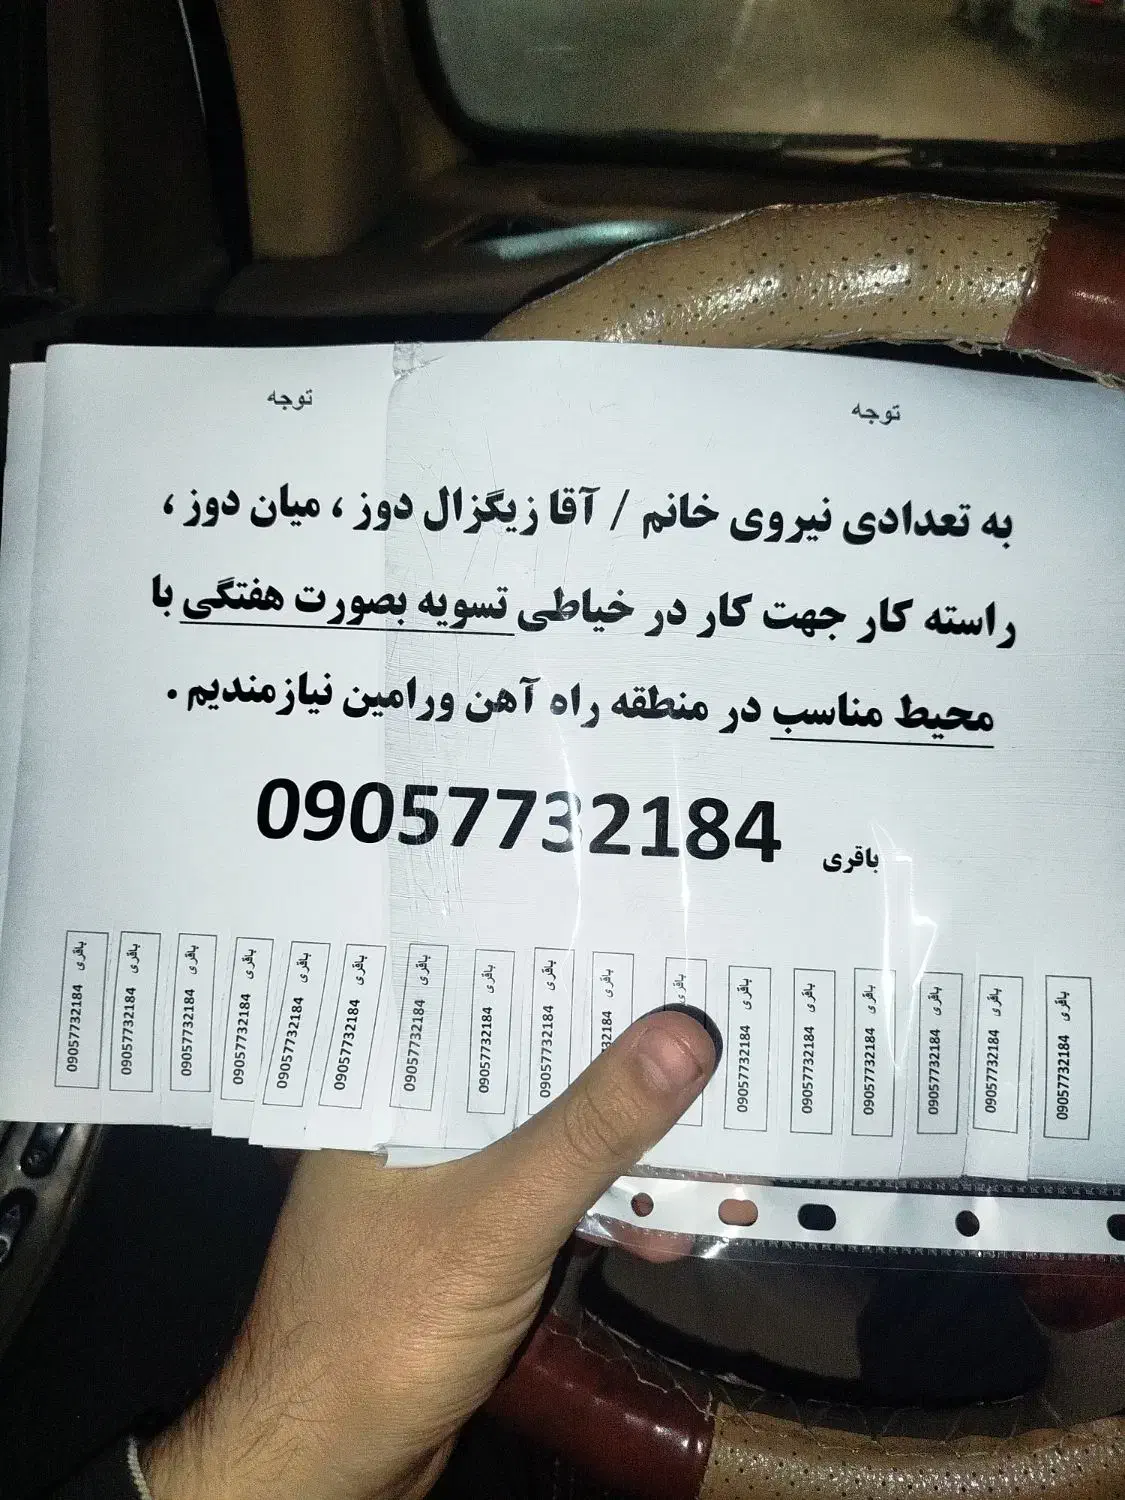 توجه
توجه
به تعدادی نیروی خانم / آقا زیگزال دوز ، میان دوز ،
راسته کار جهت کار در خیاطی تسویه بصورت هفتگی با
محیط مناسب در منطقه راه آهن ورامین نیازمندیم .
09057732184
باقری
باقری 09057732184
باقری 09057732184
باقری 09057732184
باقری 09057732184
باقری 09057732184
باقری 09057732184
باقری 09057732184
باقری 09057732184
باقری 09057732184
باقری 32184
باقری
باقری 09057732184
باقری 09057732184
باقری 09057732184
باقری 09057732184
باقری 09057732184
باقری 09057732184